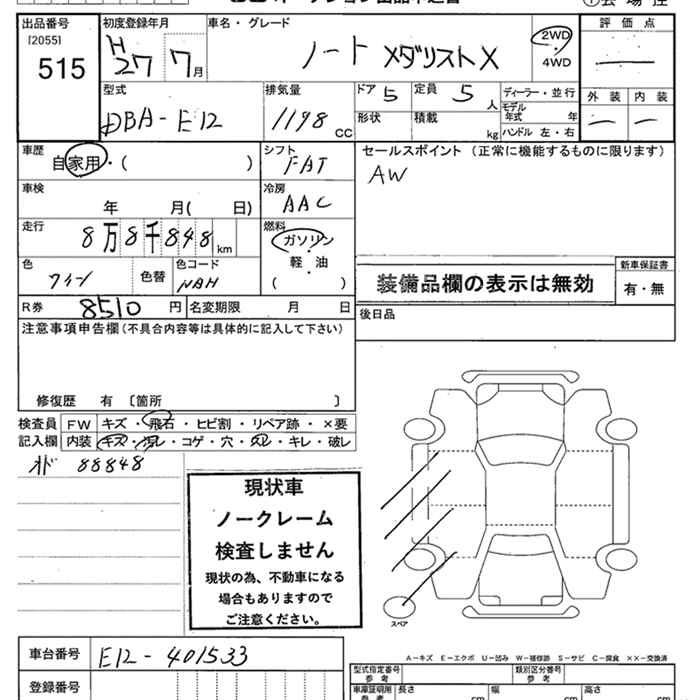 出品番号 初度登録年月 車名・グレード 評価点
[2055]
515 H27 7月 ノート メダリストX 2WD・4WD
型式 排気量 ドア 5 定員 5人 ディーラー・並行 外装 内装
DBA-E12 1198 CC 形状 積載 kg モデル年式 年
ハンドル 左・右
車歴 シフト セールスポイント (正常に機能するものに限ります)
自家用・( ) FAT AW
車検 冷房
年 月( 日) AAC
走行 燃料
8万8千848km ガソリン・軽・油
( )
色 色替 色コード 装備品欄の表示は無効 新車保証書
ワイン NAH 有・無
R券 8510円 名変期限 月 日 後日品
注意事項申告欄(不具合内容等は具体的に記入して下さい)
修復歴 有 〔箇所 〕
検査員 FW キズ・飛石・ヒビ割・リペア跡・×要
記入欄 内装 キズ・汚レ・コゲ・穴・スレ・キレ・破レ
オド 88848
現状車
ノークレーム
検査しません
現状の為、不動車になる
場合もありますので
ご注意ください。
スペア
車台番号 E12-401533
A-キズ E-エクボ U-凹み W-補修跡 S-サビ C-腐食 ××-交換済
登録番号 型式指定番号 参考 類別区分番号 参考
車庫証明用 参考 長さ cm 幅 cm 高さ cm